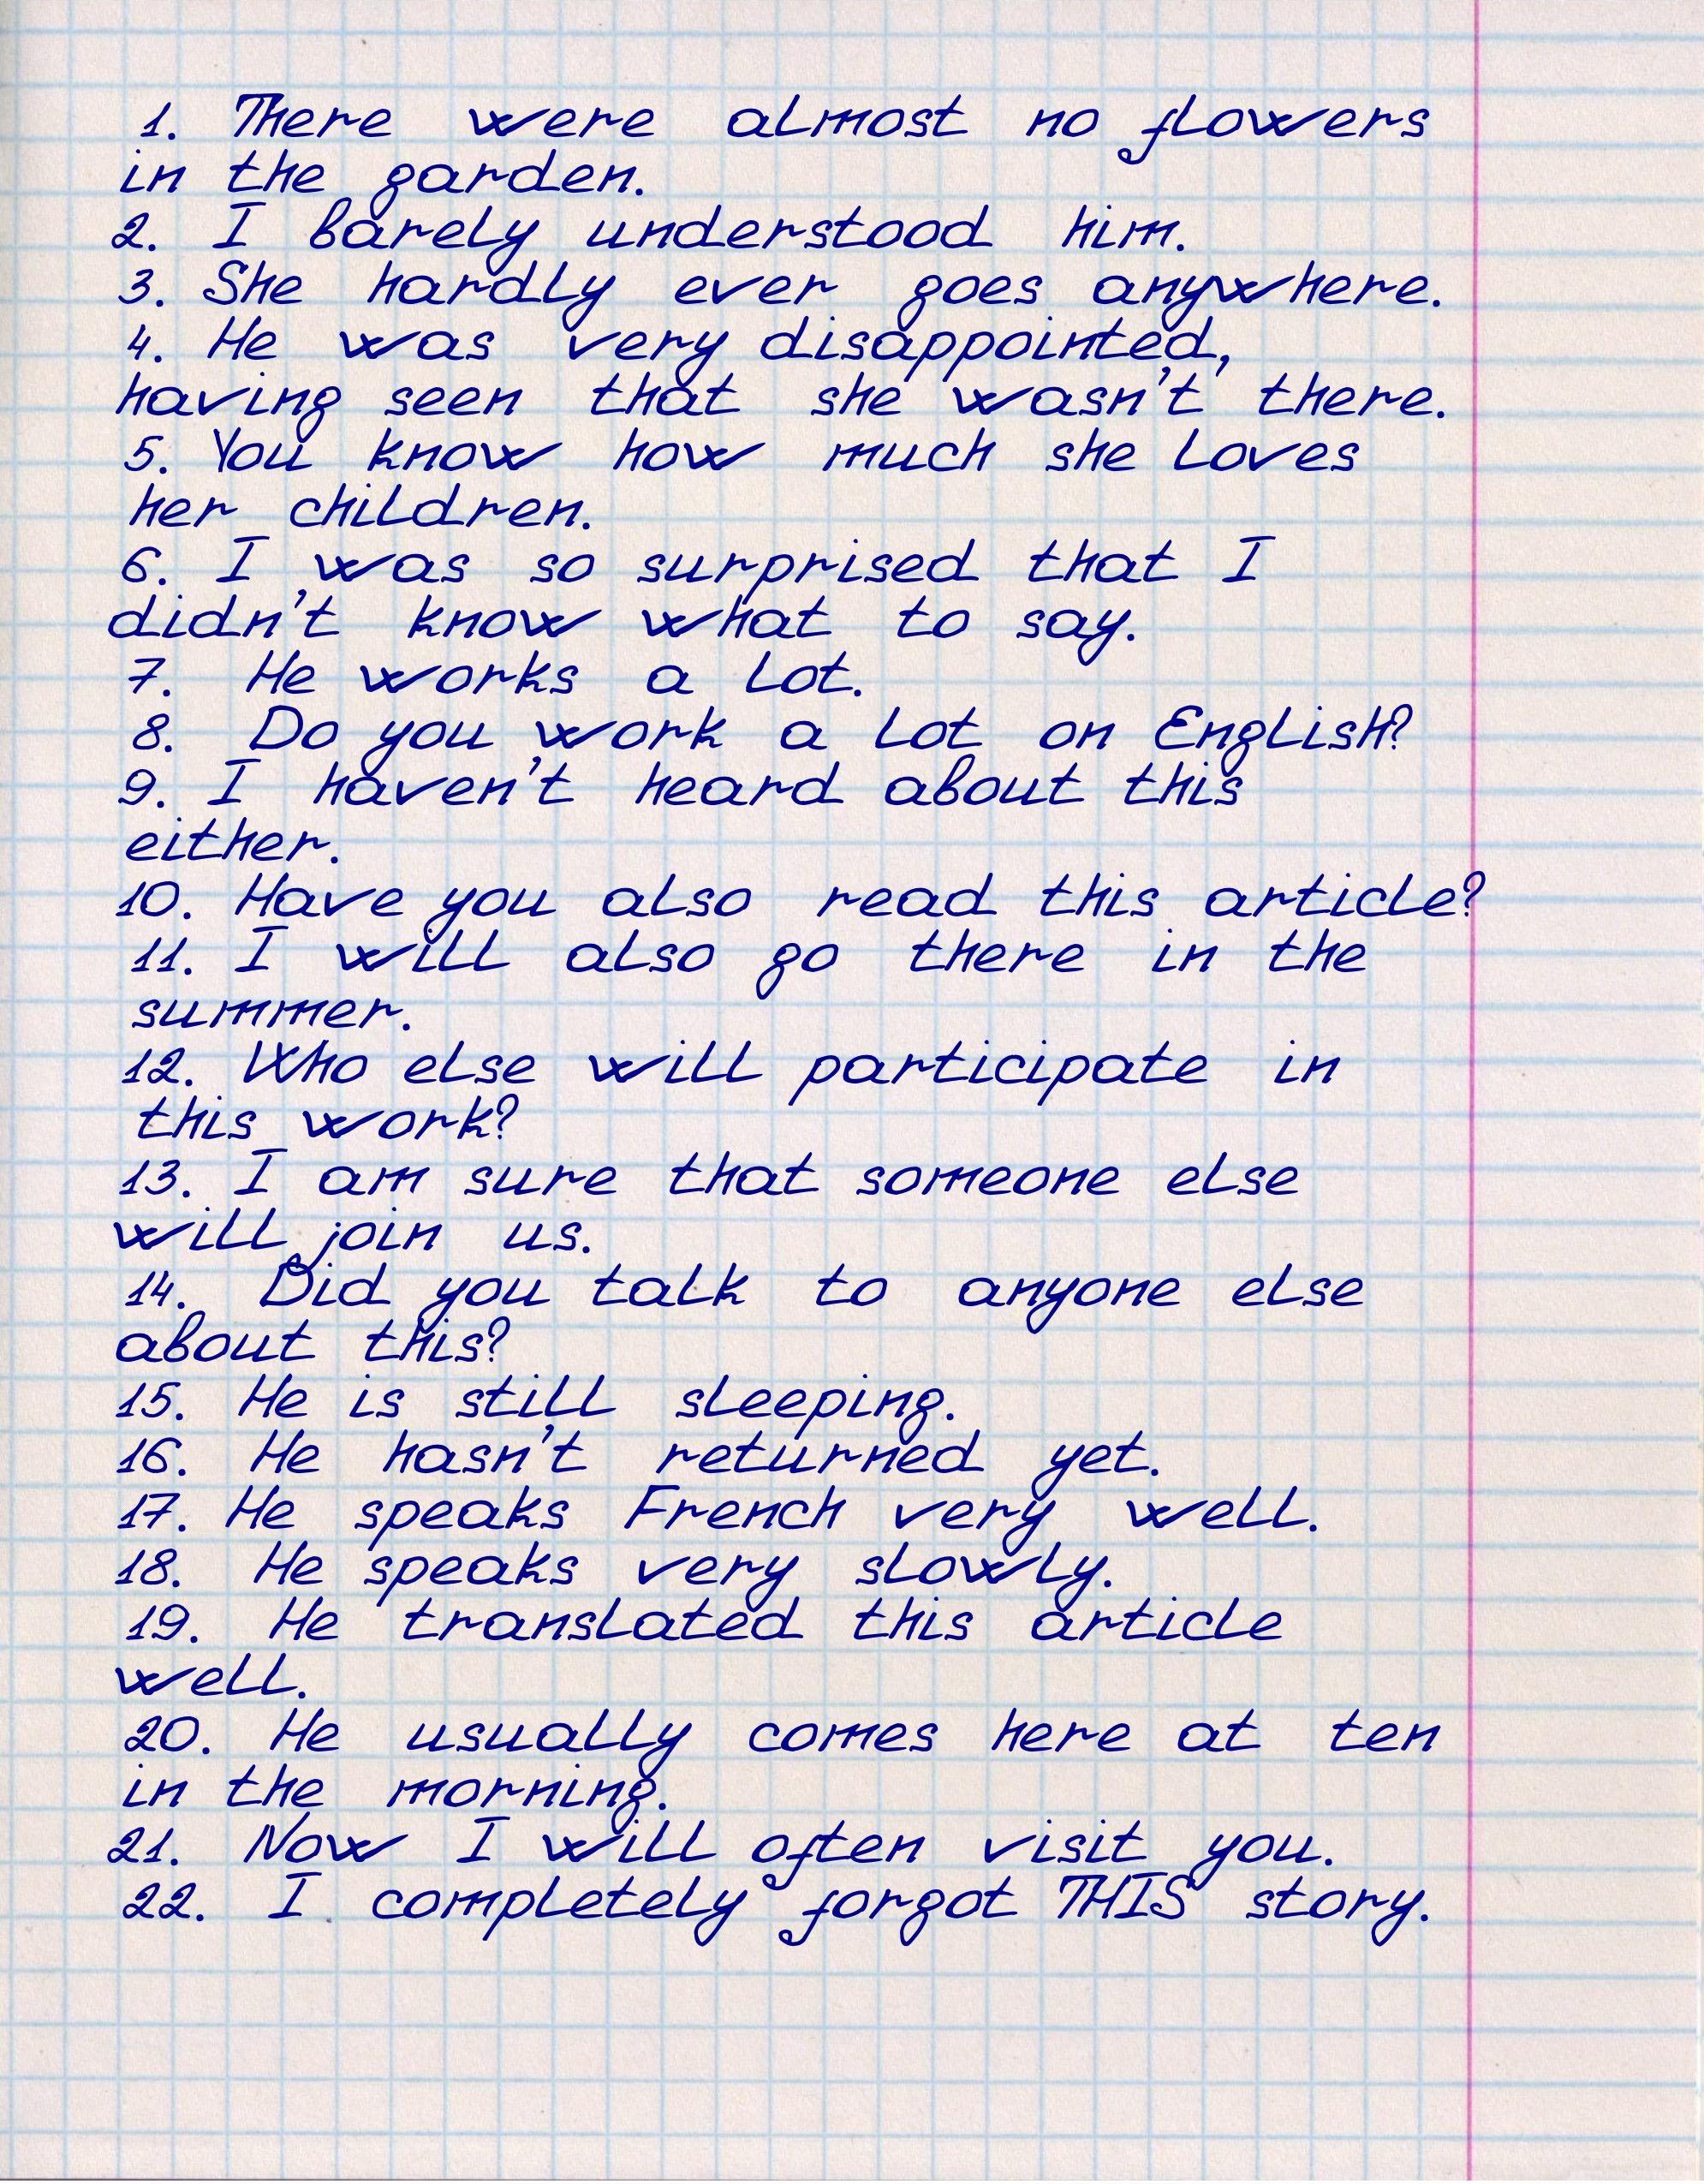 1. There were almost no flowers
in the garden.
2. I barely understood him.
3. She hardly ever goes anywhere.
4. He was very disappointed,
having seen that she wasn't there.
5. You know how much she loves
her children.
6. I was so surprised that I
didn't know what to say.
7. He works a lot.
8. Do you work a lot on English?
9. I haven't heard about this
either.
10. Have you also read this article?
11. I will also go there in the
summer.
12. Who else will participate in
this work?
13. I am sure that someone else
will join us.
14. Did you talk to anyone else
about this?
15. He is still sleeping.
16. He hasn't returned yet.
17. He speaks French very well.
18. He speaks very slowly.
19. He translated this article
well.
20. He usually comes here at ten
in the morning.
21. Now I will often visit you.
22. I completely forgot THIS story.